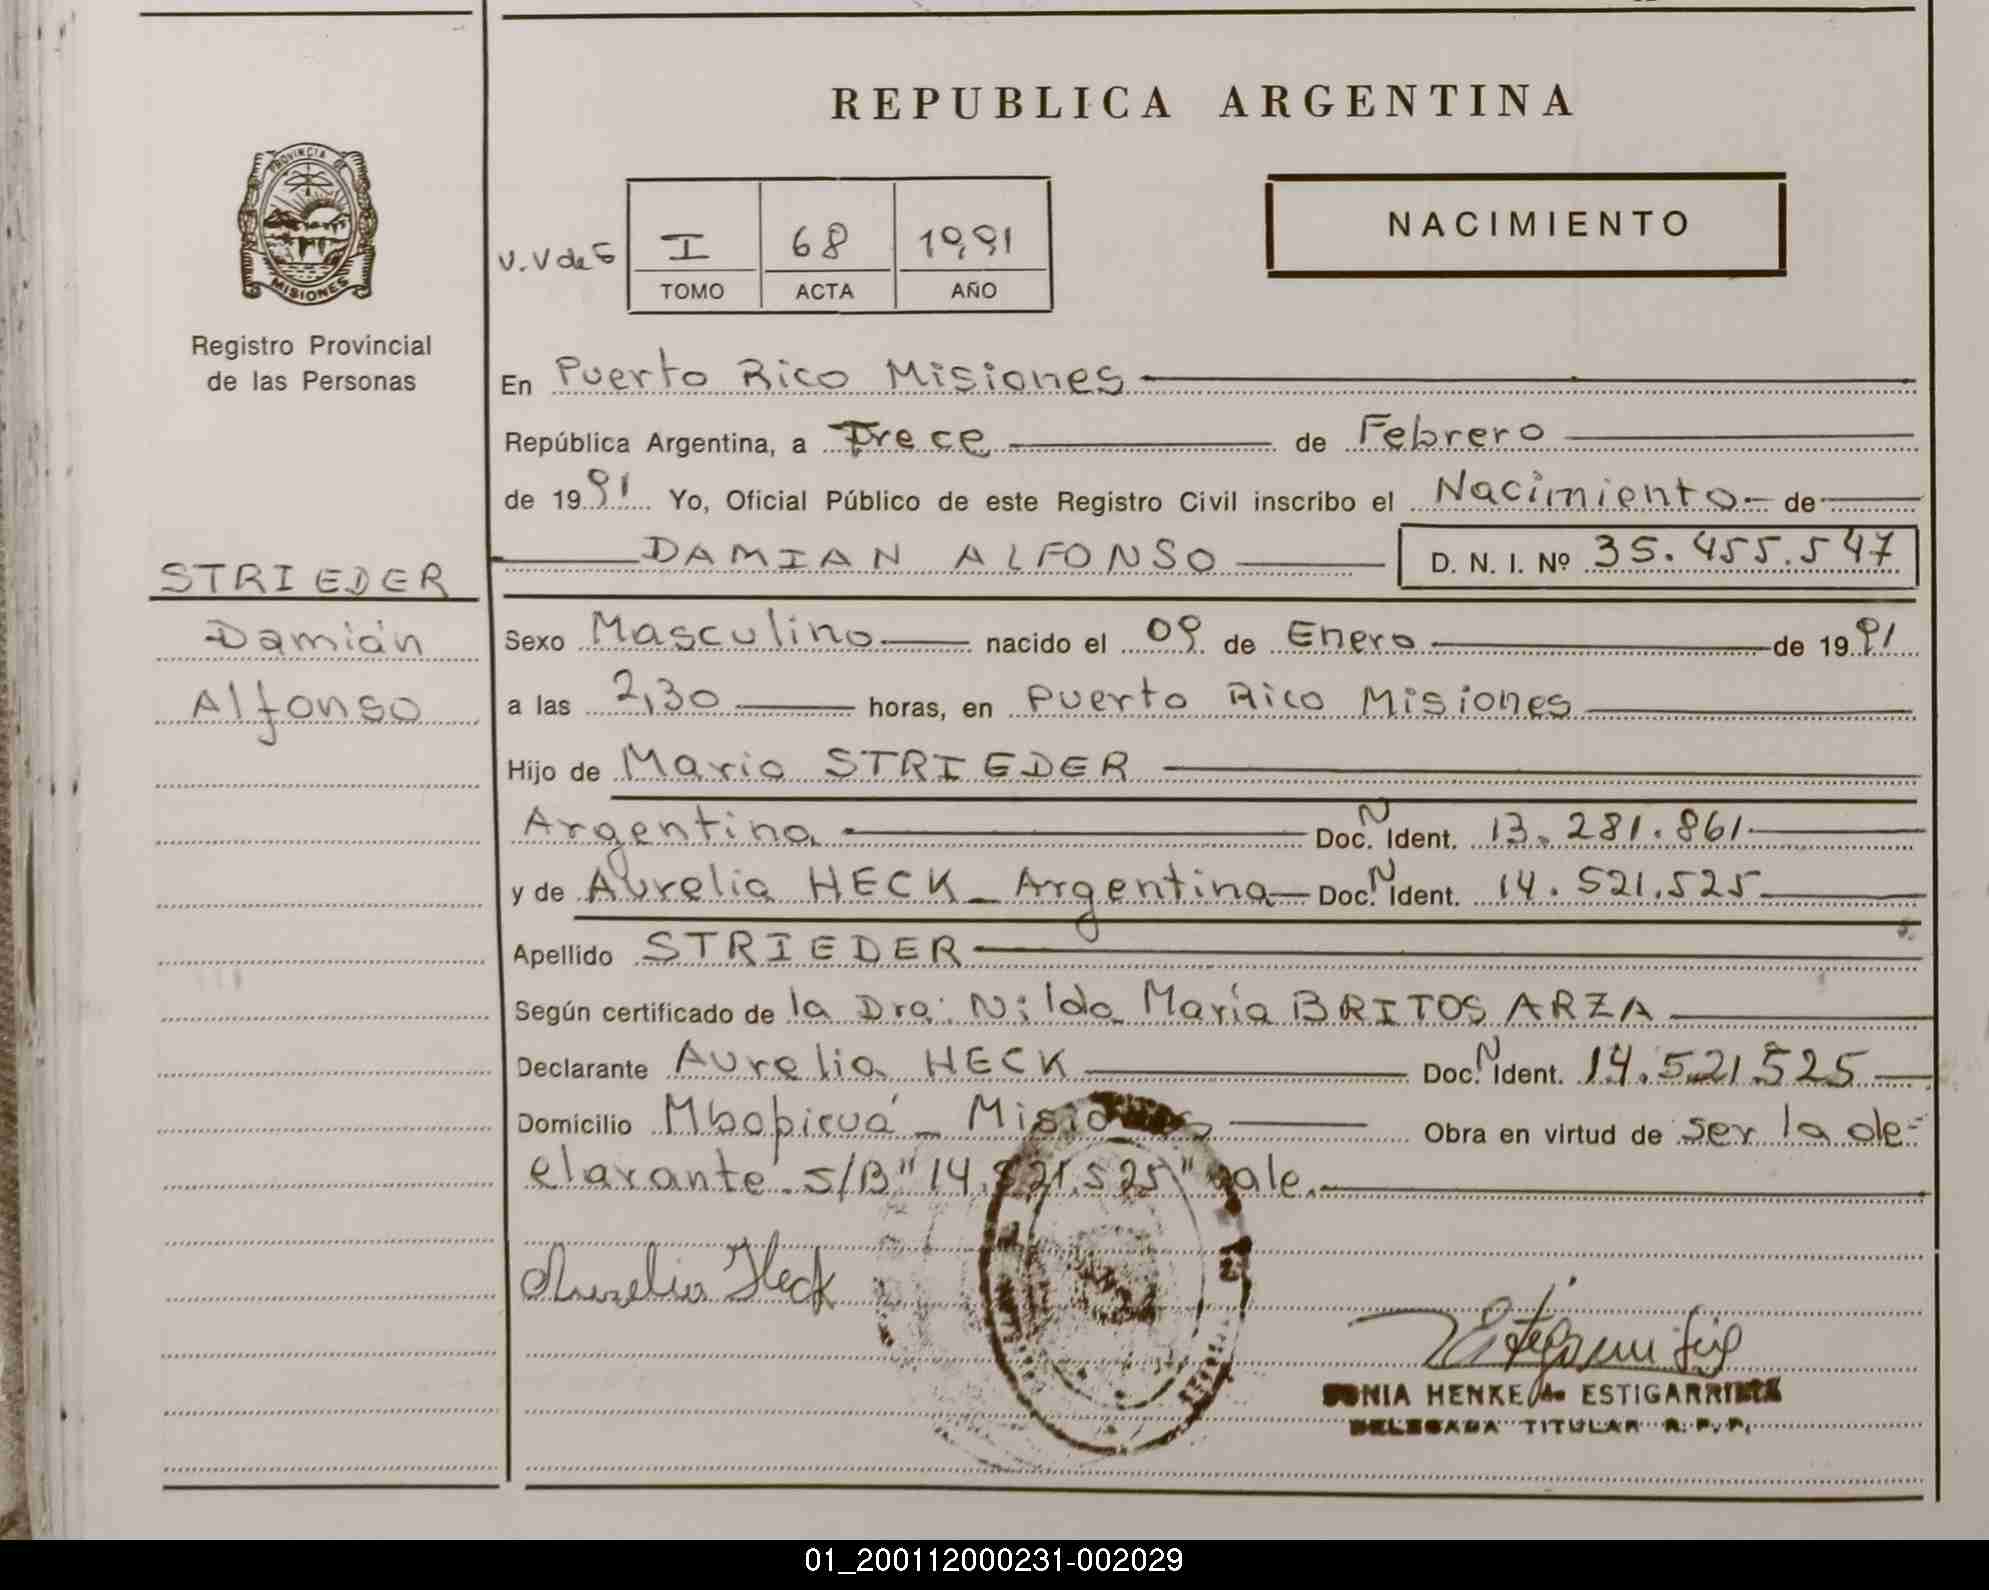 REPUBLICA ARGENTINA
PROVINCIA DE
MISIONES
Registro Provincial
de las Personas
NACIMIENTO
V.V de 5 I 68 1991
TOMO ACTA AÑO
En Puerto Rico Misiones
República Argentina, a Trece de Febrero
de 1991 Yo, Oficial Público de este Registro Civil inscribo el Nacimiento de
DAMIAN ALFONSO D. N. I. Nº 35.455.547
STRIEDER
Damián
Alfonso
Sexo Masculino nacido el 09 de Enero de 1991
a las 2,30 horas, en Puerto Rico Misiones
Hijo de Mario STRIEDER
Argentina Doc. N Ident. 13.281.861
y de Aurelia HECK - Argentina Doc. N Ident. 14.521.525
Apellido STRIEDER
Según certificado de la Dra. Nilda María BRITOS ARZA
Declarante Aurelia HECK Doc. N Ident. 14.521.525
Domicilio Mbopicuá - Misiones Obra en virtud de ser la de-
clarante. S/B "14.521.525" vale.
Aurelia Heck
SONIA HENKE de ESTIGARRIBIA
DELEGADA TITULAR R. P. P.
01_200112000231-002029